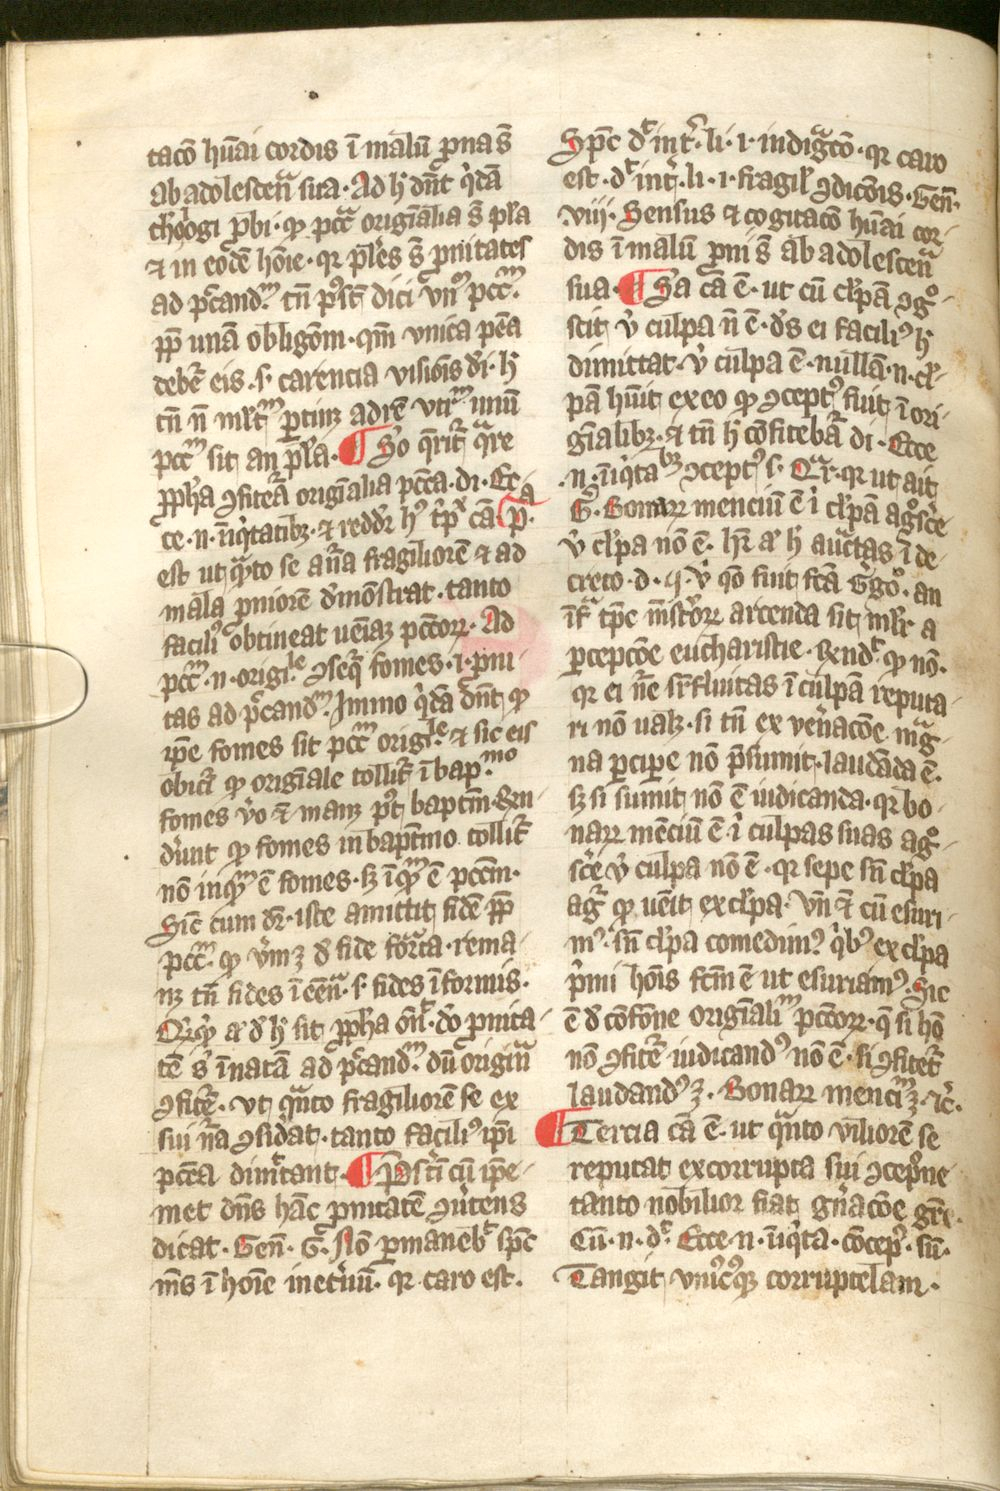 tacō hūai cordis ī malū prona s̄
ab adolescēa sua. Ad hͨ dn̄t q̄dā
theologi ꝓbi. ꝙ pct̄a originalia s̄ pl̄a
⁊ in eodē hōie. qr pl̄es s̄ pnitates
ad pctand. tn̄ p̄t dici vnū pctm̄.
ꝓp unā obligōm. qm̄ vnica pēa
debet̄ eis .s. carencia visiōis dī. h
tn̄ n̄ ml̄tm ꝑtinꝫ ad rē vtm̄ unū
pctm̄ sit an pl̄a. ¶ So q̄rit̄ q̄re
ꝓph̄a ꝯfitet̄ originalia pctā. di. Ec
ce .n. īiq̄tatibꝫ. ⁊ reddr̄ hꝰ tp̄x cā. pa.
est ut q̄nto se an̄a fragiliorē ⁊ ad
mala pniorē dmonstrat. tanto
faciliꝰ obtineat ueniaꝫ pctōꝝ. Ad
pctm̄ .n. origiͣle ꝯseq̄ fomes .i. pni
tas ad pctand. Immo q̄dā dn̄t ꝙ
ip̄e fomes sit pctm̄ origͣle. ⁊ sic eis
obicit̄ ꝙ originale tollit̄ ī bap.mo
fomes v̊o ⁊ manꝫ p̄t baptm̄. Ren
dent ꝙ fomes in baptm̄o tollit̄
nō inqͣm ē fomes. sꝫ īqͣm ē pctm̄.
Sic cum dr̄. iste amittit fidē ꝓp
pctm̄. ꝙ vm̄ꝫ d fide form̄ta. rema
nꝫ tn̄ fides ī eēn̄a. s. fides īformis.
Qͥcqͥd aū d hͦ sit ꝓph̄a on̄t. do pnita
tē s̄ īnatā ad pctand. dū originͣ
ꝯfitet̄. vt qͣnto fragiliorē se ex
sui nͣa ꝯsidat. tanto faciliꝰ ip̄i
pctā dimittant. ¶ P̄st̄i cū ip̄e
met dn̄s hāc pnitatē ꝯūtens
dicat. Gen̄. Gͣ. Nō ꝑmaneb̄ sp̄c
ms̄ ī hōie inet̄nū. qr caro est.
Sp̄c dc̄ int̄. li. i. indigͣcō. qr caro
est. dc̄ int̄. li. i. fragil̄ ꝯdicōis. Gen̄.
viij. Sensus ⁊ cogitacō hūai cor
dis ī malū pni s̄ ab adolescēa
sua. ¶ Sa cā ē. ut cū cl̄pā ꝯgͦ
scit v̊ culpa n̄ ē. ds̄ ei faciliꝰ h
dimittat. v̊ culpa ē. nullā .n. cl̄
pā hūit ex eo ꝙ ꝯceptꝰ fuit ī ori
ginalibꝫ. ⁊ tn̄ h cōfitebat̄ di. Ecce
.n. īiq̄tabꝫ ꝯceptꝰ s. Qͣr. qr ut ait
G. Bonaꝝ menciū ē i cl̄pā agͦsc̄e
v̊ cl̄pa nō ē. hr̄ aū h auctͣtas ī de
creto. d. q. v̊ qō fuit fctā Ggͦo. an
īfͣ tp̄c mn̄stroꝝ arcenda sit ml̄r a
ꝑcepcōe eucharistie. Rendt̄ ꝙ nō.
qr ei nͣe sr̄fluitas ī culpā reputa
ri nō ualꝫ. si tn̄ ex ven̄acōe mͣg
na ꝑciꝑe nō p̄sumit. laudāda ē.
sꝫ si sumit nō ē iudicanda. qr bo
naꝝ mēciū ē i culpas suas agͦ
sc̄e v̊ culpa nō ē. qr sepe sn̄ cl̄pa
agr̄ ꝙ uēit ex cl̄pa. Vn̄ ⁊ cū esuri
mꝰ. sn̄ cl̄pa comedimꝰ q̄bꝰ ex cl̄pa
p̄mi hōis fctm̄ ē ut esuriamꝰ. Sic
ē d cōfōne originaliū pctōꝝ. q̄ si hō
nō ꝯfitet̄ iudicandꝰ nō ē. si ꝯfitet̄
laudandꝰ ꝫ. Bonaꝝ menciū ꝫ. ⁊c̄.
¶ Tercia cā ē. ut qͣnto viliorē se
reputat ex corrupta sui ꝯcepōne
tanto nobilior fiat gn̄acōe gr̄e.
Cū .n. dt̄. Ecce .n. īiq̄ta. cōcepꝰ. sū.
Tangit vniūcꝰqꝫ corruptelam.